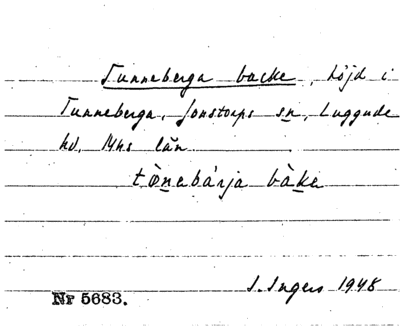 Tunneberga backe, höjd i
Tunneberga, Jonstorps sn, Luggude
hd, Mhs län
tònebárja bàke
I. Ingers 1948
Nr 5683.